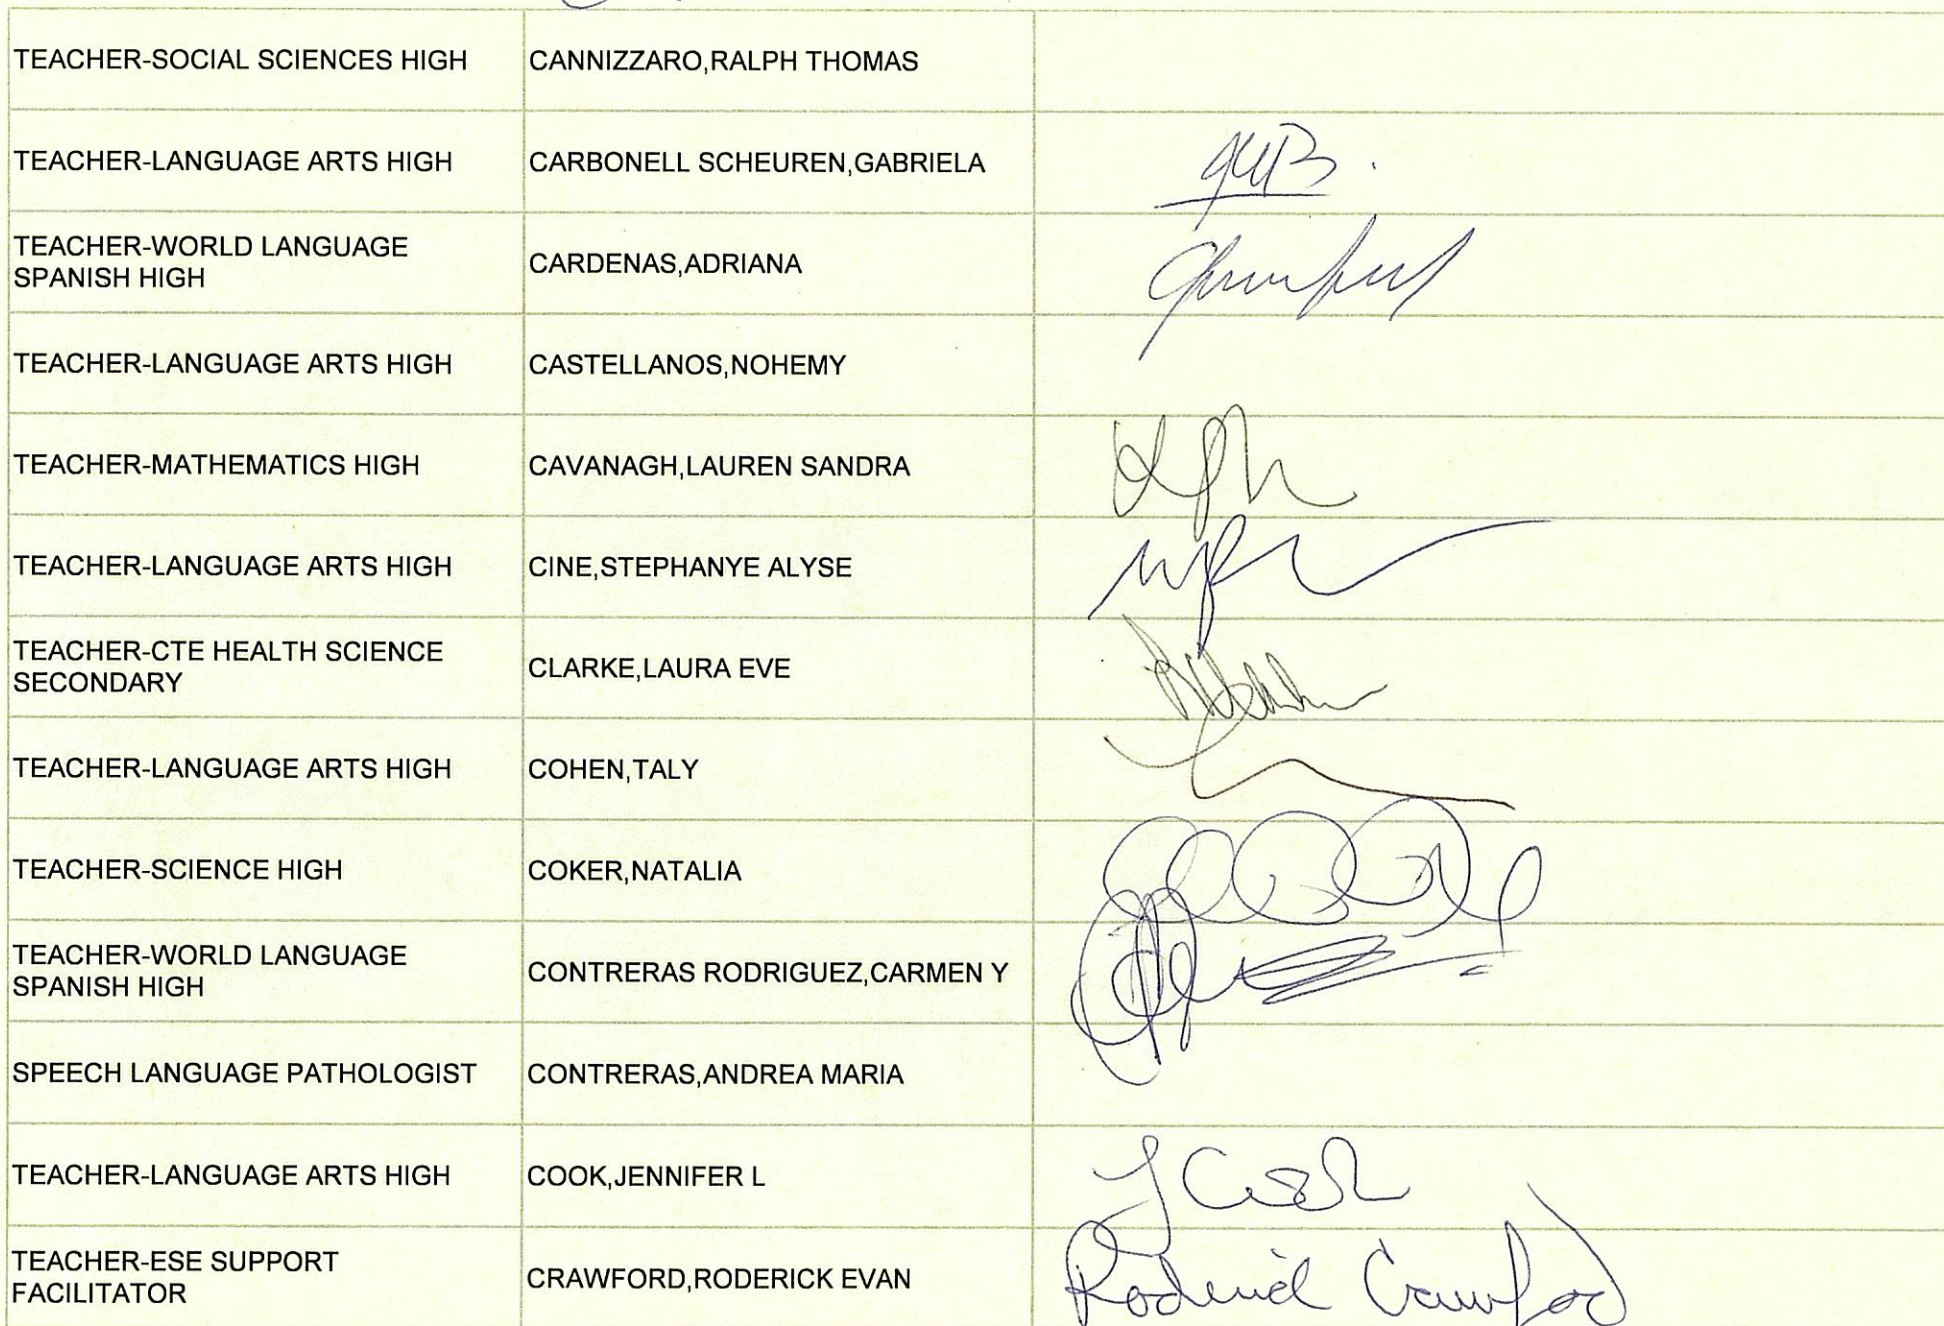 TEACHER-SOCIAL SCIENCES HIGH CANNIZZARO,RALPH THOMAS
TEACHER-LANGUAGE ARTS HIGH CARBONELL SCHEUREN,GABRIELA
TEACHER-WORLD LANGUAGE
SPANISH HIGH CARDENAS,ADRIANA
TEACHER-LANGUAGE ARTS HIGH CASTELLANOS,NOHEMY
TEACHER-MATHEMATICS HIGH CAVANAGH,LAUREN SANDRA
TEACHER-LANGUAGE ARTS HIGH CINE,STEPHANYE ALYSE
TEACHER-CTE HEALTH SCIENCE
SECONDARY CLARKE,LAURA EVE
TEACHER-LANGUAGE ARTS HIGH COHEN,TALY
TEACHER-SCIENCE HIGH COKER,NATALIA
TEACHER-WORLD LANGUAGE
SPANISH HIGH CONTRERAS RODRIGUEZ,CARMEN Y
SPEECH LANGUAGE PATHOLOGIST CONTRERAS,ANDREA MARIA
TEACHER-LANGUAGE ARTS HIGH COOK,JENNIFER L J Cook
TEACHER-ESE SUPPORT
FACILITATOR CRAWFORD,RODERICK EVAN Roderick Crawford